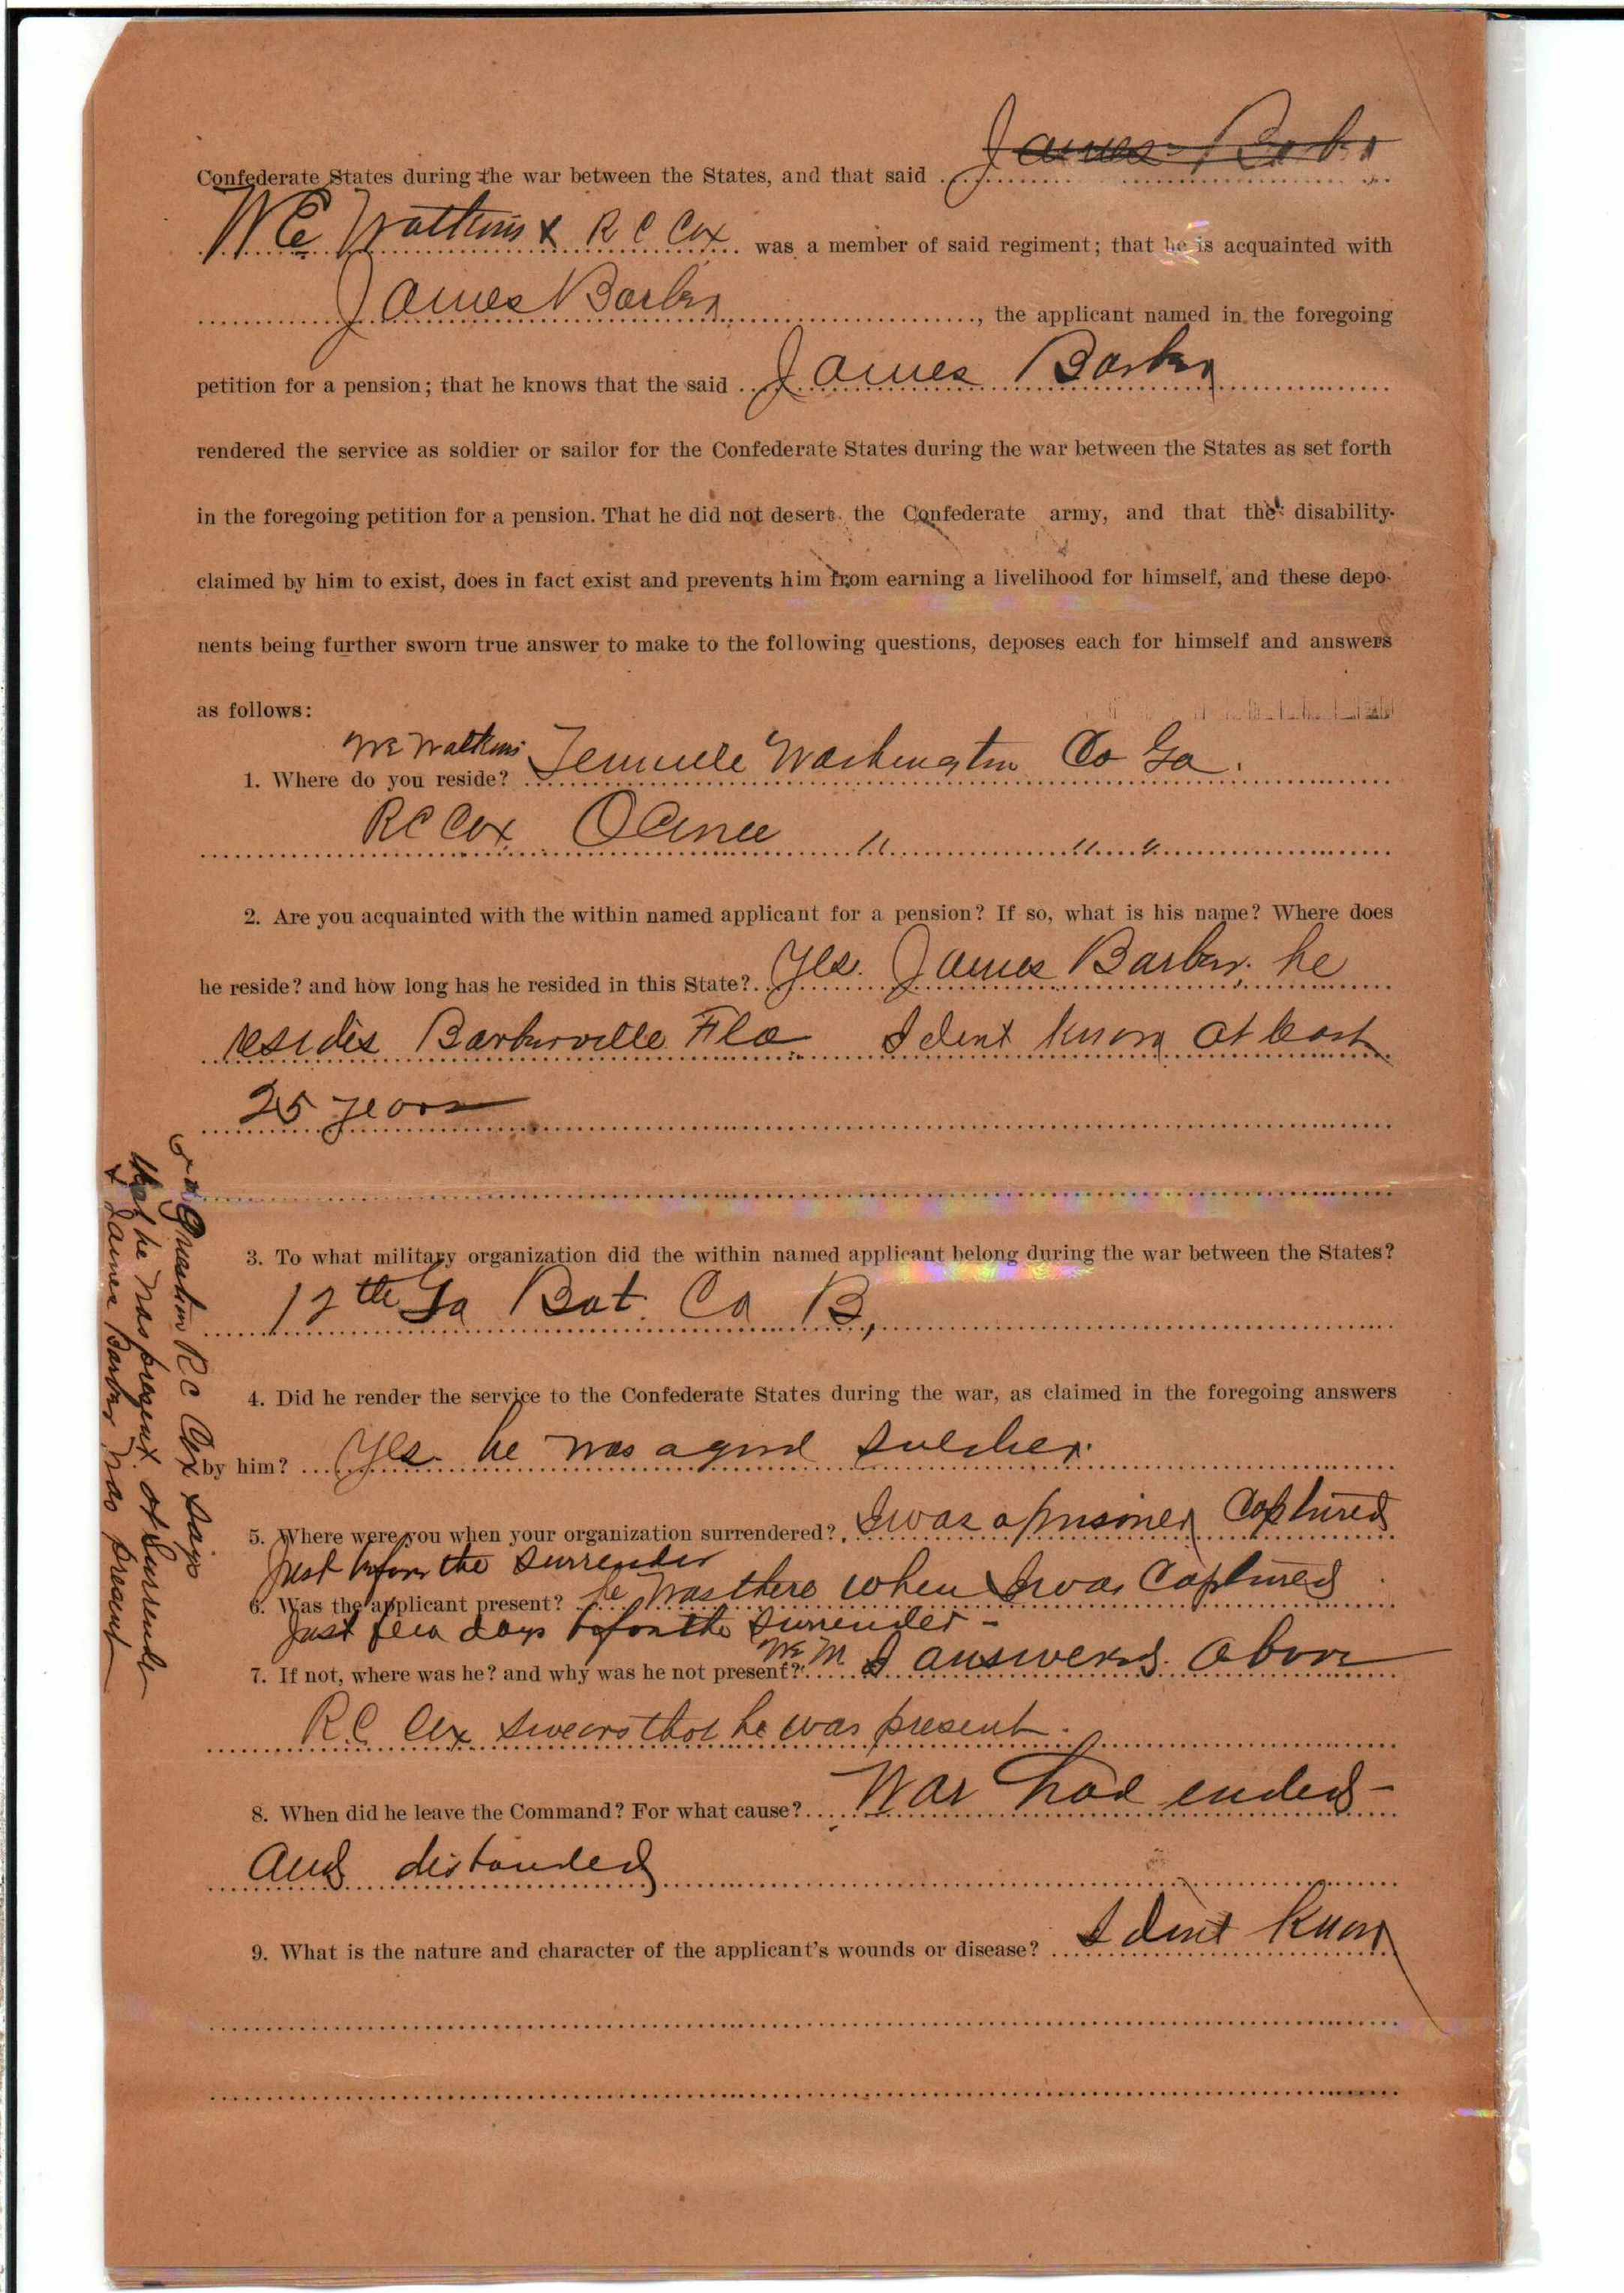 James Barber
Confederate States during the war between the States, and that said
W E Watkins & R C Cox was a member of said regiment; that he is acquainted with
James Barber, the applicant named in the foregoing
petition for a pension; that he knows that the said James Barber
rendered the service as soldier or sailor for the Confederate States during the war between the States as set forth
in the foregoing petition for a pension. That he did not desert the Confederate army, and that the disability
claimed by him to exist, does in fact exist and prevents him from earning a livelihood for himself, and these depo-
nents being further sworn true answer to make to the following questions, deposes each for himself and answers
as follows:
WE Watkins
1. Where do you reside? Tennille Washington Co Ga.
R C Cox Oconee " " "
2. Are you acquainted with the within named applicant for a pension? If so, what is his name? Where does
he reside? and how long has he resided in this State? Yes. James Barber. he
resides Barberville Fla I dont know at least
25 years
3. To what military organization did the within named applicant belong during the war between the States?
12th Ga Bat. Co B,
4. Did he render the service to the Confederate States during the war, as claimed in the foregoing answers
by him? Yes he was a good soldier.
5. Where were you when your organization surrendered? I was a prisoner Captured
Just before the surrender
6. Was the applicant present? he was there when I was Captured
Just few days before the surrender -
7. If not, where was he? and why was he not present? I answered above
R.C. Cox swears that he was present.
8. When did he leave the Command? For what cause? War had ended -
and disbanded
9. What is the nature and character of the applicant's wounds or disease? I dont know
Question R C Cox says
that he was present at surrender
& James Barber was present